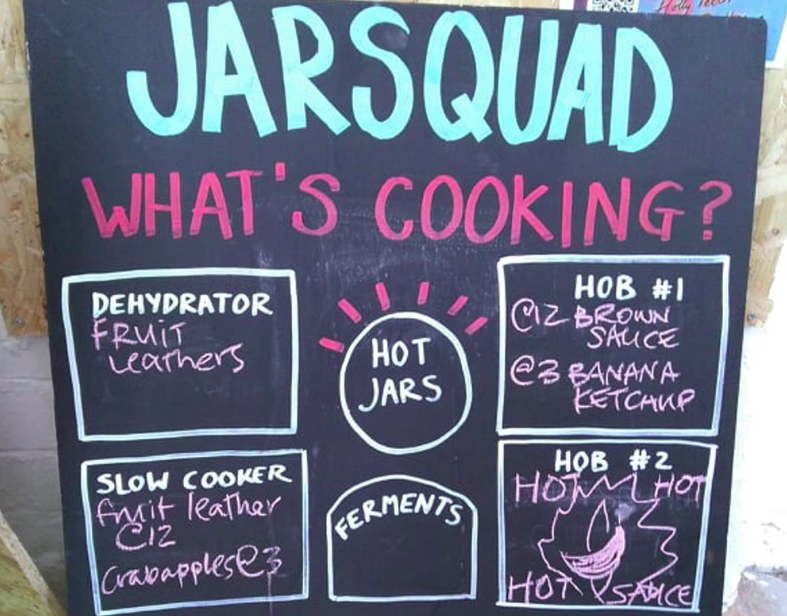 JARSQUAD
WHAT'S COOKING?
DEHYDRATOR
FRUIT
Leathers
HOT
JARS
HOB #1
@12 BROWN
SAUCE
@3 BANANA
KETCHUP
SLOW COOKER
fruit leather
@12
Crabapples@3
FERMENTS
HOB #2
HOT HOT
HOT SAUCE
Holly